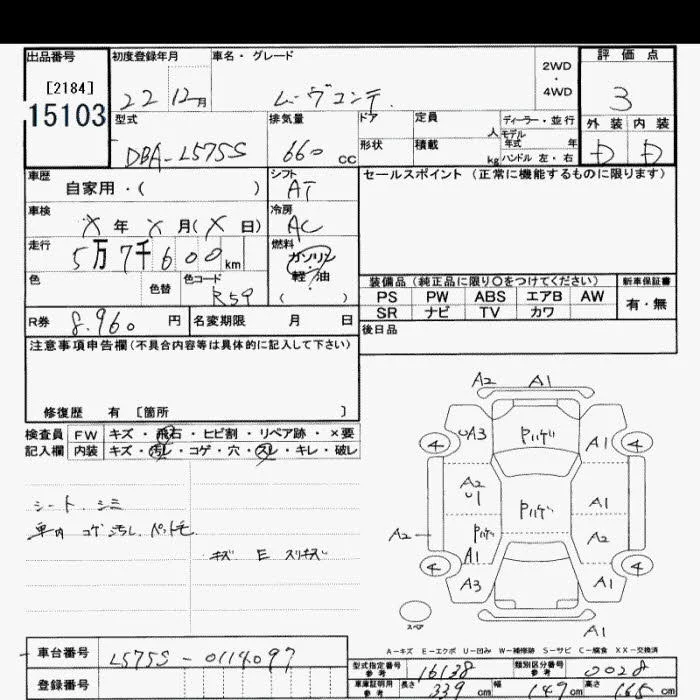 出品番号 初度登録年月 車名・グレード 評価点
[2184]
15103
22 12月 ムーヴコンテ 2WD・4WD 3
型式 排気量 ドア 定員 人 ディーラー・並行 外装 内装
モデル年式 年
DBA-L575S 660cc 形状 積載 kg ハンドル 左・右 D D
車歴 シフト セールスポイント (正常に機能するものに限ります)
自家用・( ) AT
車検 冷房
X年 X月(X日) AC
走行 燃料
5万7千600km ガソリン
軽・油
( )
色 色替 色コード R59
装備品 (純正品に限り○をつけてください) 新車保証書
PS PW ABS エアB AW 有・無
SR ナビ TV カワ
R券 8,960円 名変期限 月 日 後日品
注意事項申告欄(不具合内容等は具体的に記入して下さい)
修復歴 有 [箇所 ]
検査員 FW キズ・飛石・ヒビ割・リペア跡・×要
記入欄 内装 キズ・汚レ・コゲ・穴・スレ・キレ・破レ
シート、シミ
車内 コゲ 汚レ、ペット毛
キズ E スリキズ
A2 A1
4 UA3 Pハゲ A1 4
A2 U1 Pハゲ A1
A2 Pハゲ A2
A1
4 A3 A1 4
スペア A1
A-キズ E-エクボ U-凹み W-補修跡 S-サビ C-腐食 XX-交換済
車台番号 L575S-0114097
登録番号
型式指定番号 参考 16138 類別区分番号 参考 0028
車庫証明用 参考 長さ 339cm 幅 149cm 高さ cm